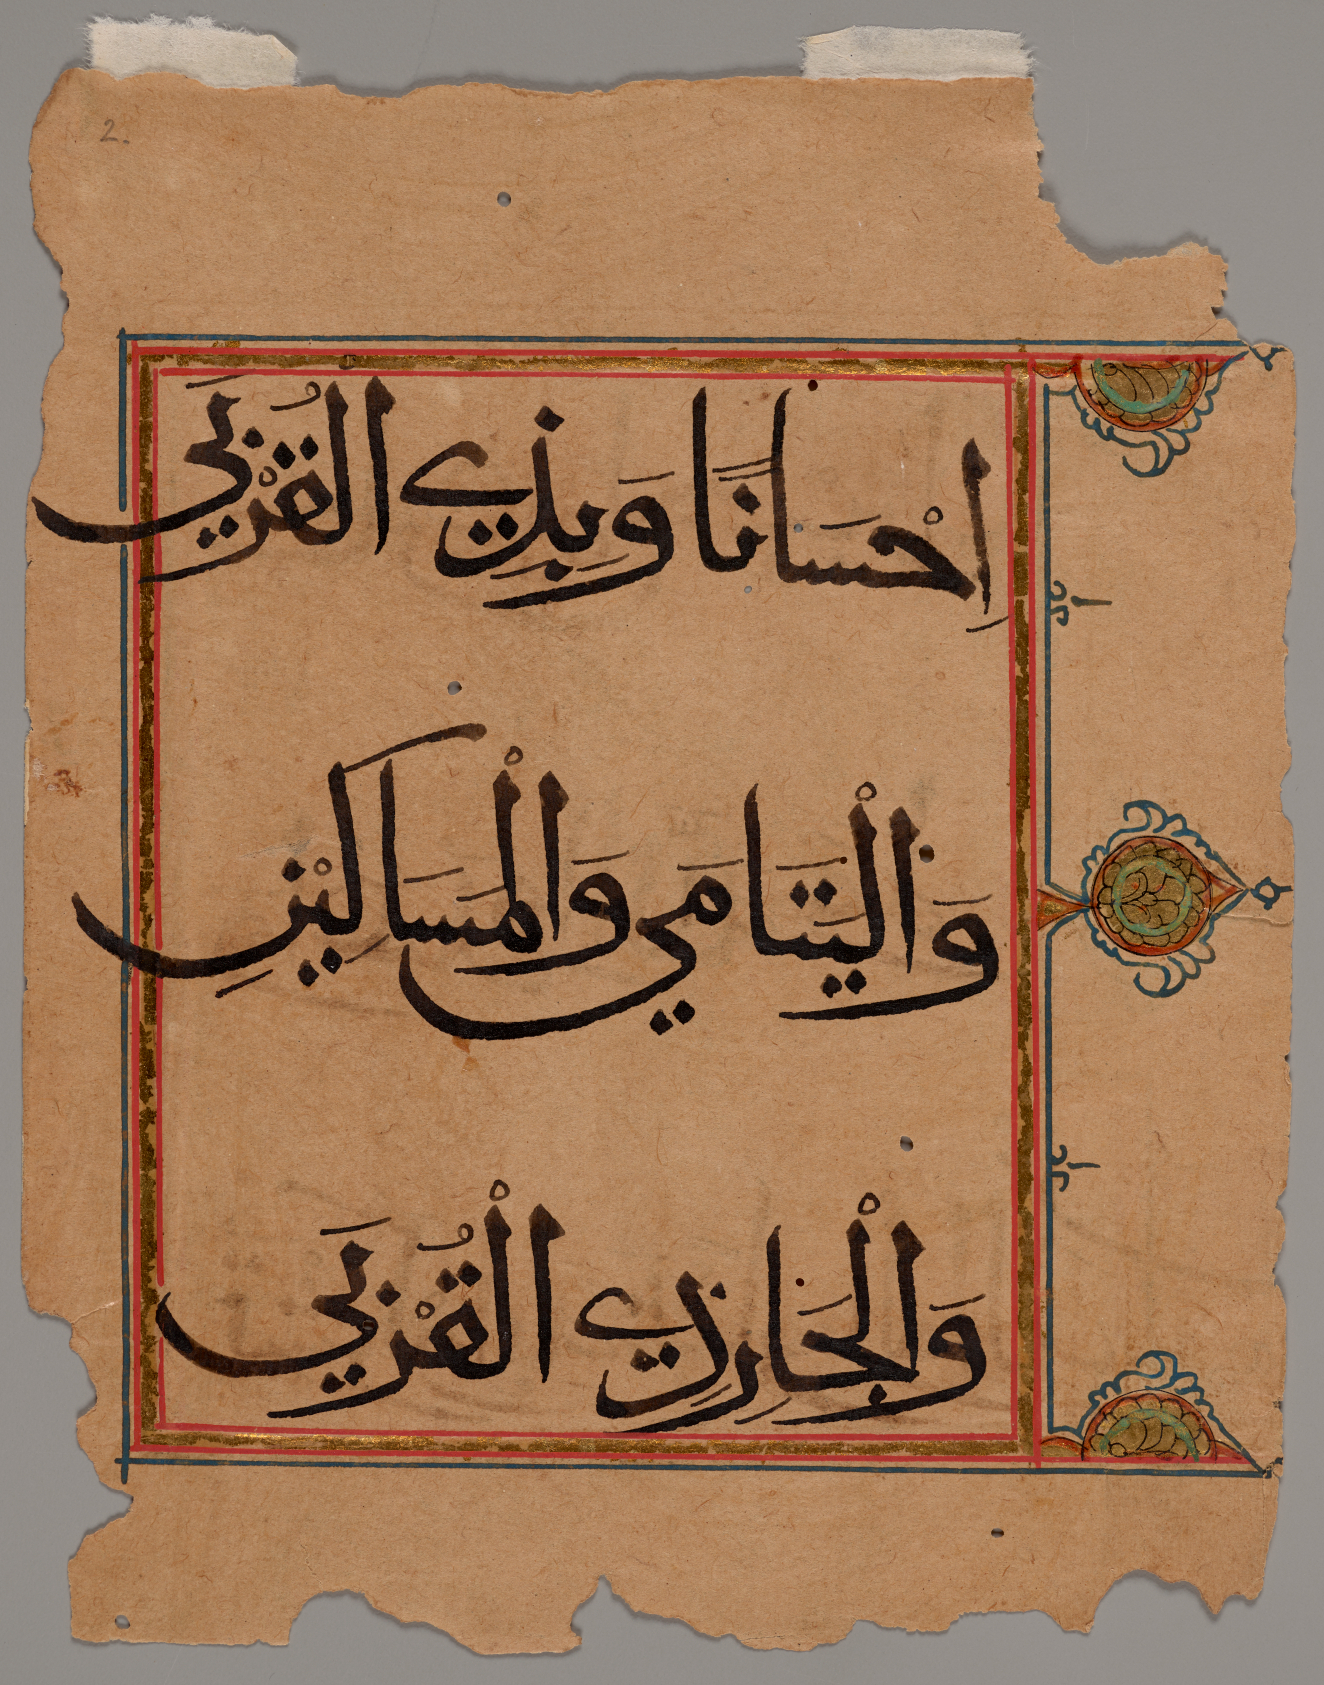 2.
إحْسَانًا وَبِذِي القُرْبَي
وَالْيَتَامَي وَالْمَسَاكِيْنِ
وَالْجَارِ ذِي الْقُرْبَي